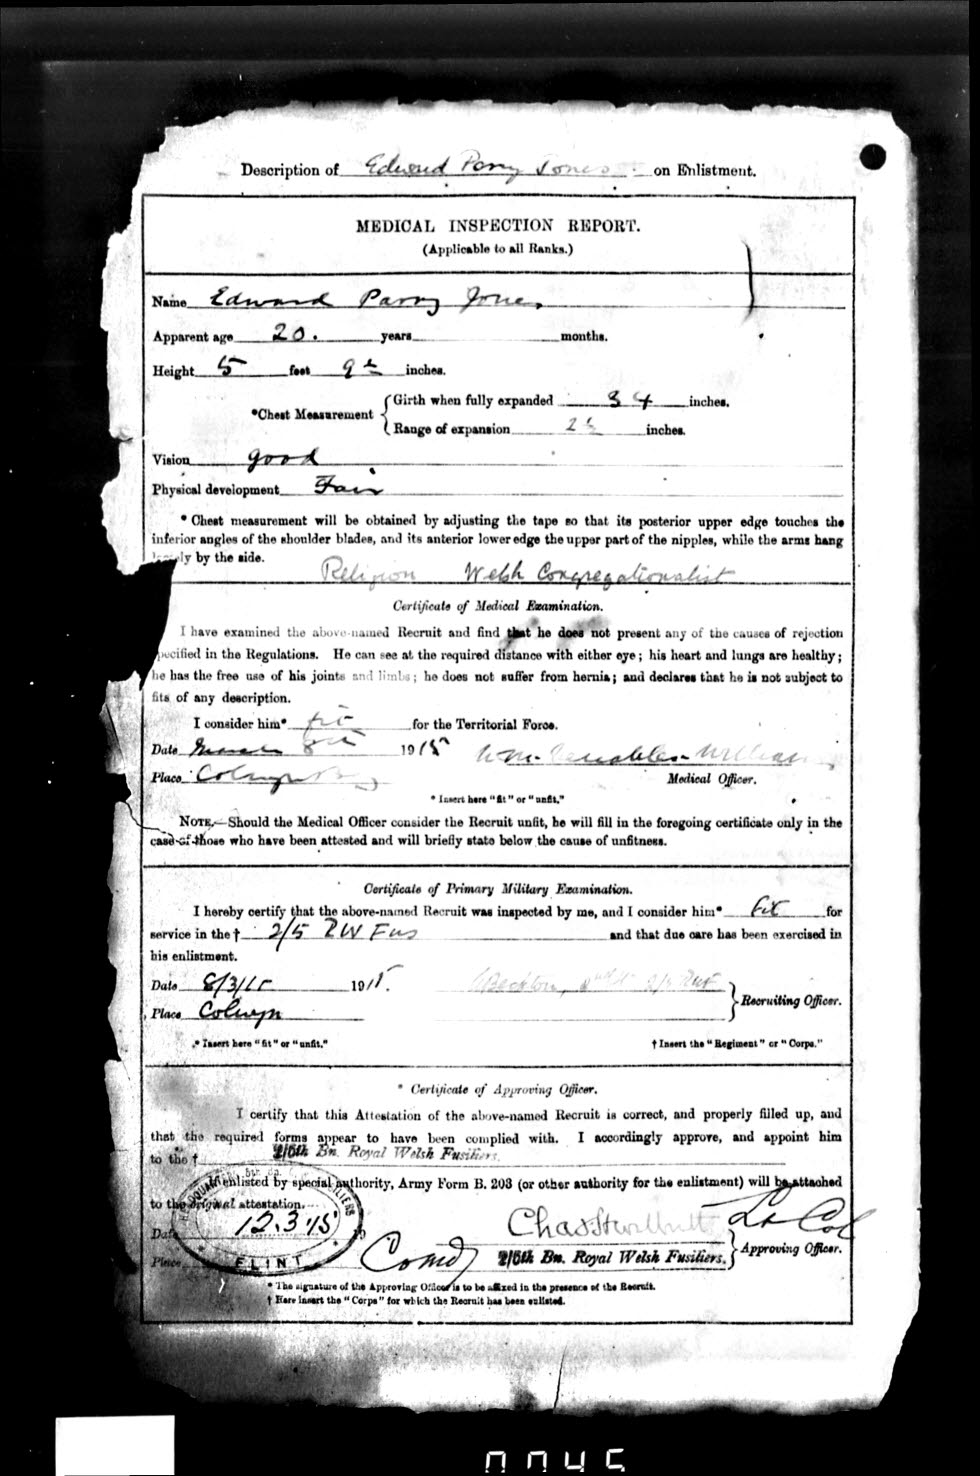 Description of Edward Parry Jones on Enlistment.
MEDICAL INSPECTION REPORT.
(Applicable to all Ranks.)
Name Edward Parry Jones
Apparent age 20. years months.
Height 5 feet 9½ inches.
*Chest Measurement { Girth when fully expanded 34 inches.
Range of expansion 2½ inches.
Vision good
Physical development Fair
* Chest measurement will be obtained by adjusting the tape so that its posterior upper edge touches the
inferior angles of the shoulder blades, and its anterior lower edge the upper part of the nipples, while the arms hang
by the side.
Religion Welsh Congregationalist
Certificate of Medical Examination.
I have examined the above-named Recruit and find that he does not present any of the causes of rejection
specified in the Regulations. He can see at the required distance with either eye; his heart and lungs are healthy;
he has the free use of his joints and limbs; he does not suffer from hernia; and declares that he is not subject to
fits of any description.
I consider him* fit for the Territorial Force.
Date March 8th 1915 Wm. Venables-Williams
Place Colwyn Bay Medical Officer.
* Insert here "fit" or "unfit."
NOTE.—Should the Medical Officer consider the Recruit unfit, he will fill in the foregoing certificate only in the
case of those who have been attested and will briefly state below the cause of unfitness.
Certificate of Primary Military Examination.
I hereby certify that the above-named Recruit was inspected by me, and I consider him* fit for
service in the † 2/5 RW Fus and that due care has been exercised in
his enlistment.
Date 8/3/15 1915.
Recruiting Officer.
Place Colwyn
* Insert here "fit" or "unfit." † Insert the "Regiment" or "Corps."
* Certificate of Approving Officer.
I certify that this Attestation of the above-named Recruit is correct, and properly filled up, and
that the required forms appear to have been complied with. I accordingly approve, and appoint him
to the † 2/5th Bn. Royal Welsh Fusiliers.
If enlisted by special authority, Army Form B. 203 (or other authority for the enlistment) will be attached
to the original attestation.
Date 12.3.15 19 Lt Col
Place FLINT Comdg 2/5th Bn. Royal Welsh Fusiliers. } Approving Officer.
* The signature of the Approving Officer is to be affixed in the presence of the Recruit.
† Here insert the "Corps" for which the Recruit has been enlisted.
0045